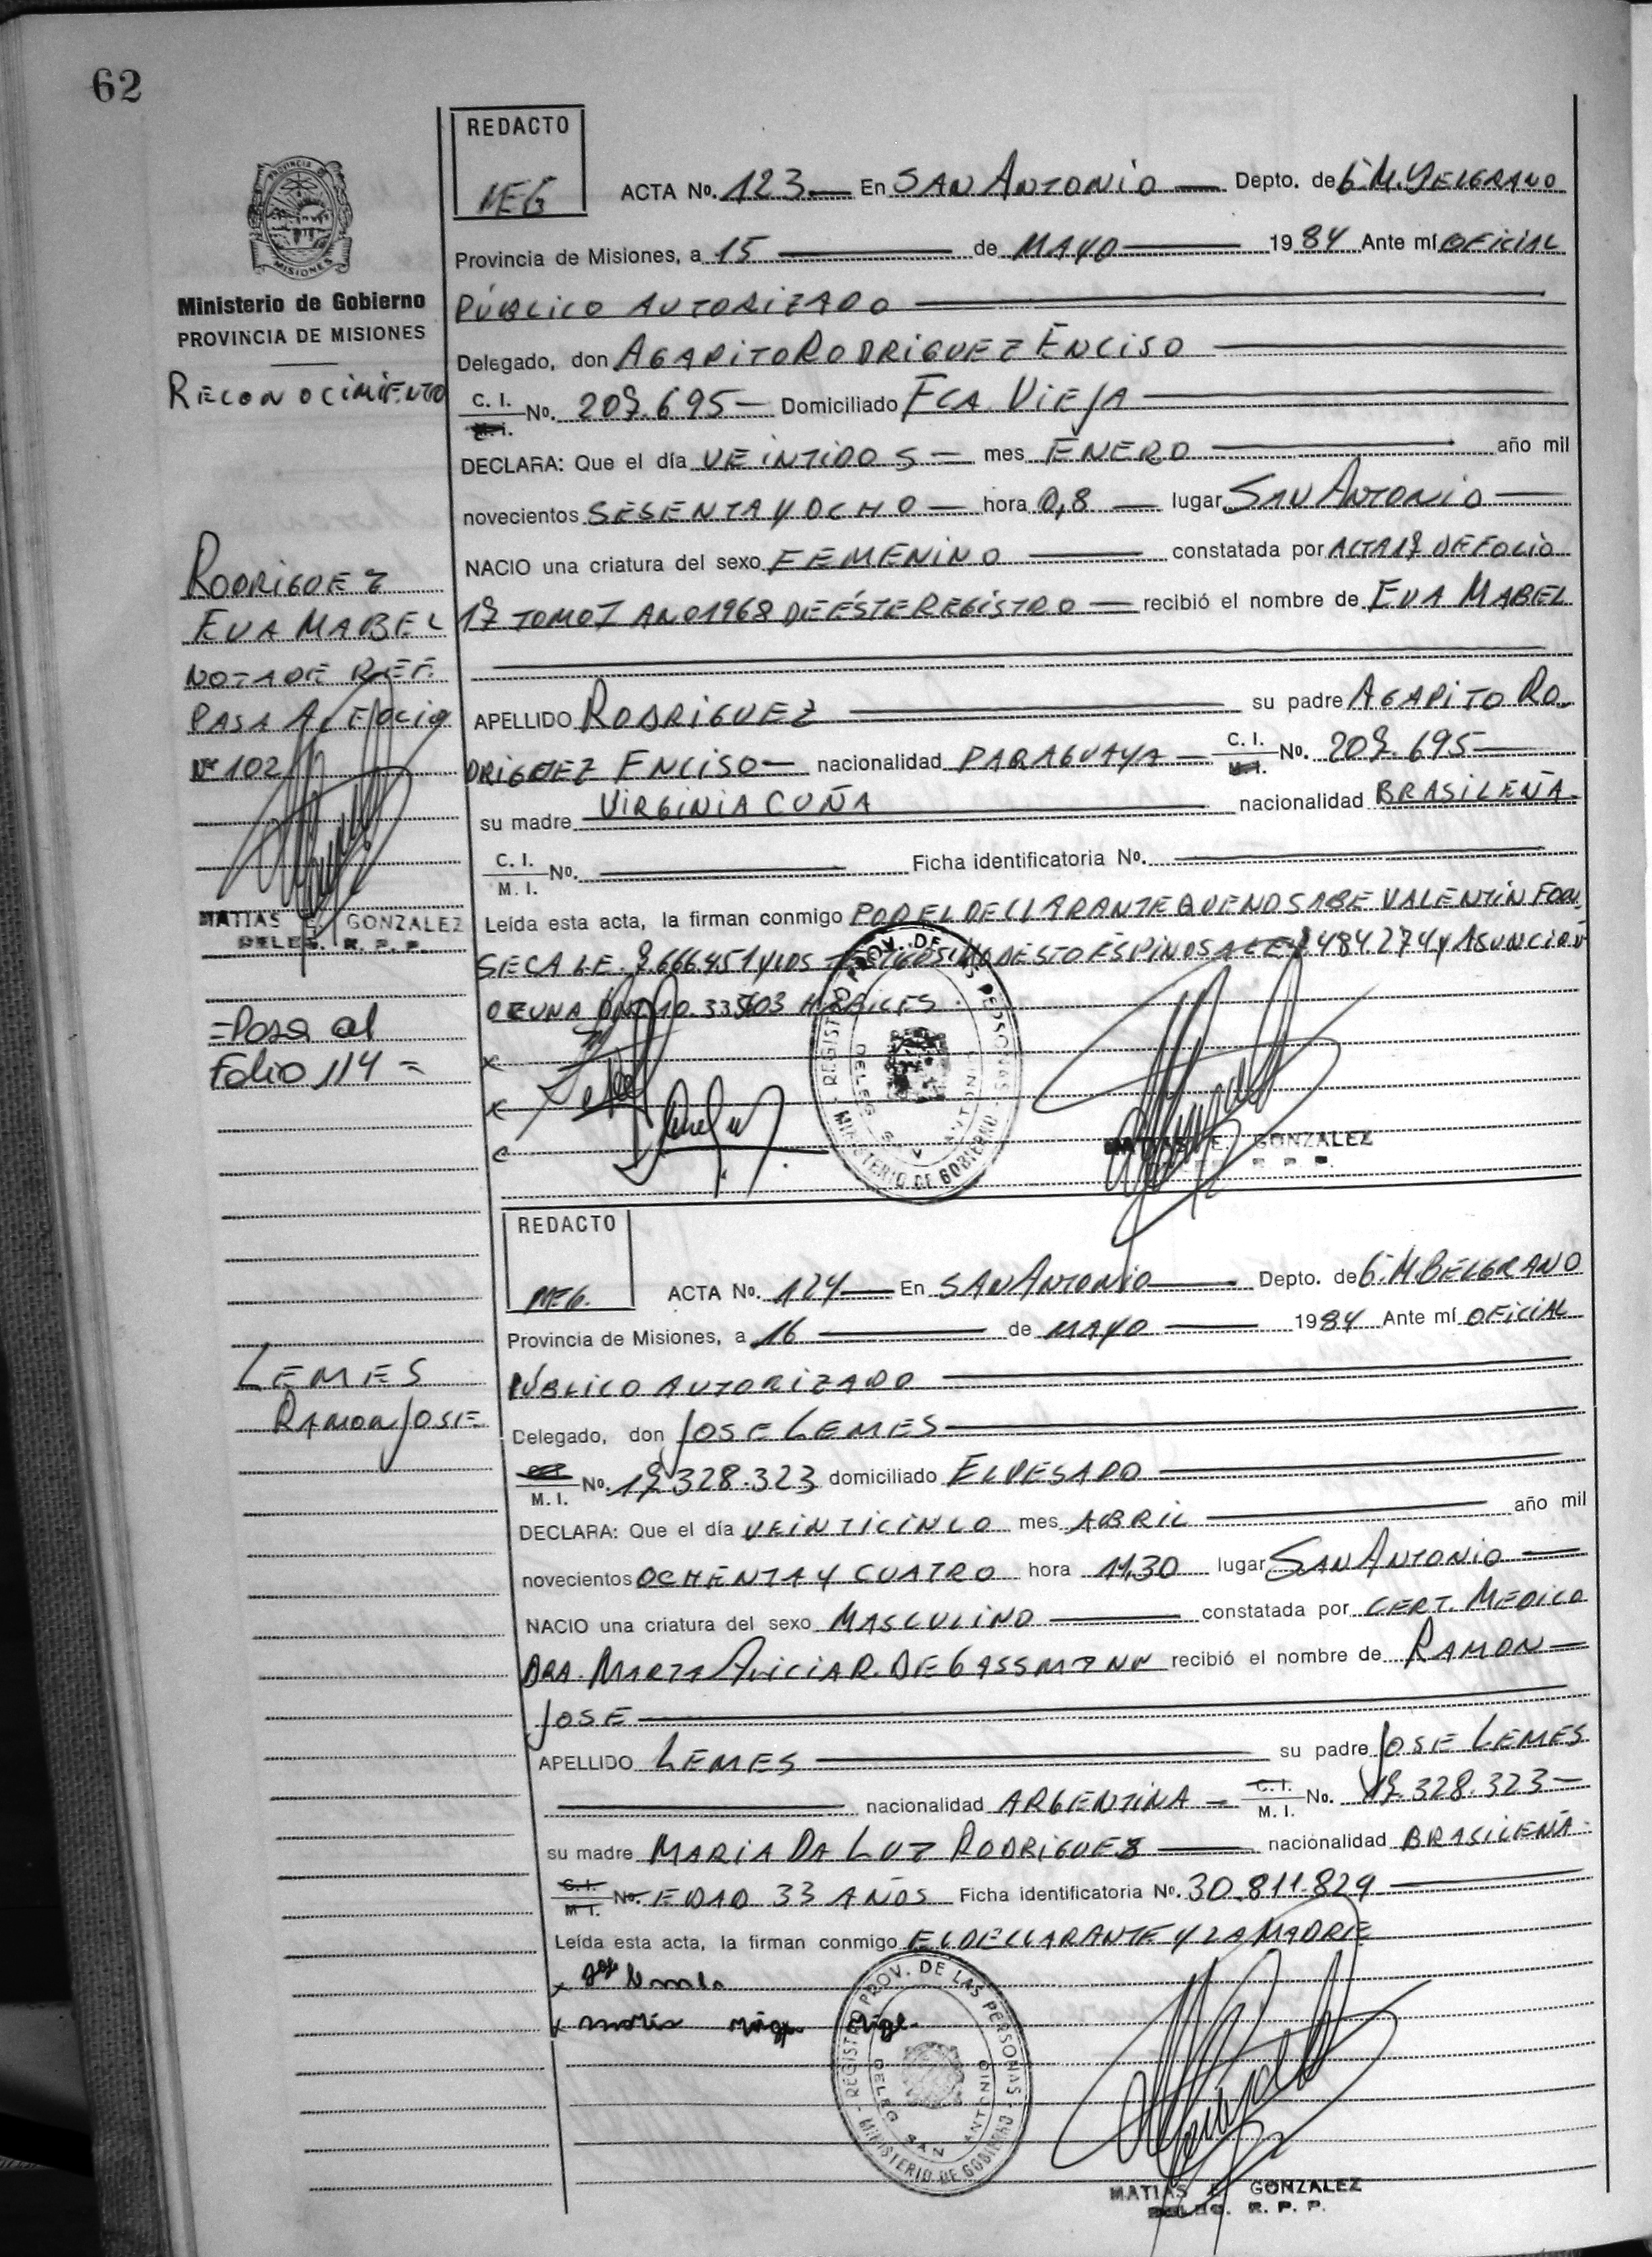 62
REDACTO
MEG
ACTA No. 123 En SAN ANTONIO Depto. de G.M. BELGRANO
PROVINCIA DE
MISIONES
Provincia de Misiones, a 15 de MAYO 1984 Ante mí OFICIAL
Ministerio de Gobierno
PÚBLICO AUTORIZADO
PROVINCIA DE MISIONES
Delegado, don AGAPITO RODRIGUEZ ENCISO
RECONOCIMIENTO
C. I. M. I. No. 207.695 Domiciliado FCA. VIEJA
DECLARA: Que el día VEINTIDOS mes ENERO año mil
novecientos SESENTA Y OCHO hora 0,8 lugar SAN ANTONIO
NACIO una criatura del sexo FEMENINO constatada por ACTA 17 DE FOLIO
RODRIGUEZ
17 TOMO I AÑO 1968 DE ÉSTE REGISTRO recibió el nombre de EVA MABEL
EVA MABEL
NOTA DE REF.
APELLIDO RODRIGUEZ su padre AGAPITO RO-
PASA AL FOLIO
DRIGUEZ ENCISO nacionalidad PARAGUAYA C. I. M. I. No. 207.695
Nº 102
su madre VIRGINIA CUÑA nacionalidad BRASILEÑA
C. I. M. I. No. Ficha identificatoria No.
MATIAS E. GONZALEZ
DELEG. R. P. P.
Leída esta acta, la firman conmigo POR EL DECLARANTE QUE NO SABE VALENTIN FON
SECA L.E. 7.666.451 Y LOS TESTIGOS: MODESTO ESPINOSA LE 484.274 Y ASUNCION
DNI 10.335 HABILES.
=Pasa al
Folio 114 =
REGISTRO PROV. DE LAS PERSONAS
DELEG. SAN ANTONIO
MINISTERIO DE GOBIERNO
MATIAS E. GONZALEZ
DELEG. R. P. P.
REDACTO
MEG.
ACTA No. 124 En SAN ANTONIO Depto. de G.M. BELGRANO
Provincia de Misiones, a 16 de MAYO 1984 Ante mí OFICIAL
LEMES
PÚBLICO AUTORIZADO
RAMON JOSE
Delegado, don JOSE LEMES
M. I. No. 17.328.323 domiciliado EL PESADO
DECLARA: Que el día VEINTICINCO mes ABRIL año mil
novecientos OCHENTA Y CUATRO hora 11,30 lugar SAN ANTONIO
NACIO una criatura del sexo MASCULINO constatada por CERT. MEDICO
DRA. MARTA ALICIA R. DE GASSMANN recibió el nombre de RAMON
JOSE
APELLIDO LEMES su padre JOSE LEMES
nacionalidad ARGENTINA C. I. M. I. No. 17.328.323
su madre MARIA DA LUZ RODRIGUEZ nacionalidad BRASILEÑA
C. I. M. I. No. EDAD 33 AÑOS Ficha identificatoria No. 30.811.829
Leída esta acta, la firman conmigo EL DECLARANTE Y LA MADRE
REGISTRO PROV. DE LAS PERSONAS
DELEG. SAN ANTONIO
MINISTERIO DE GOBIERNO
MATIAS E. GONZALEZ
DELEG. R. P. P.